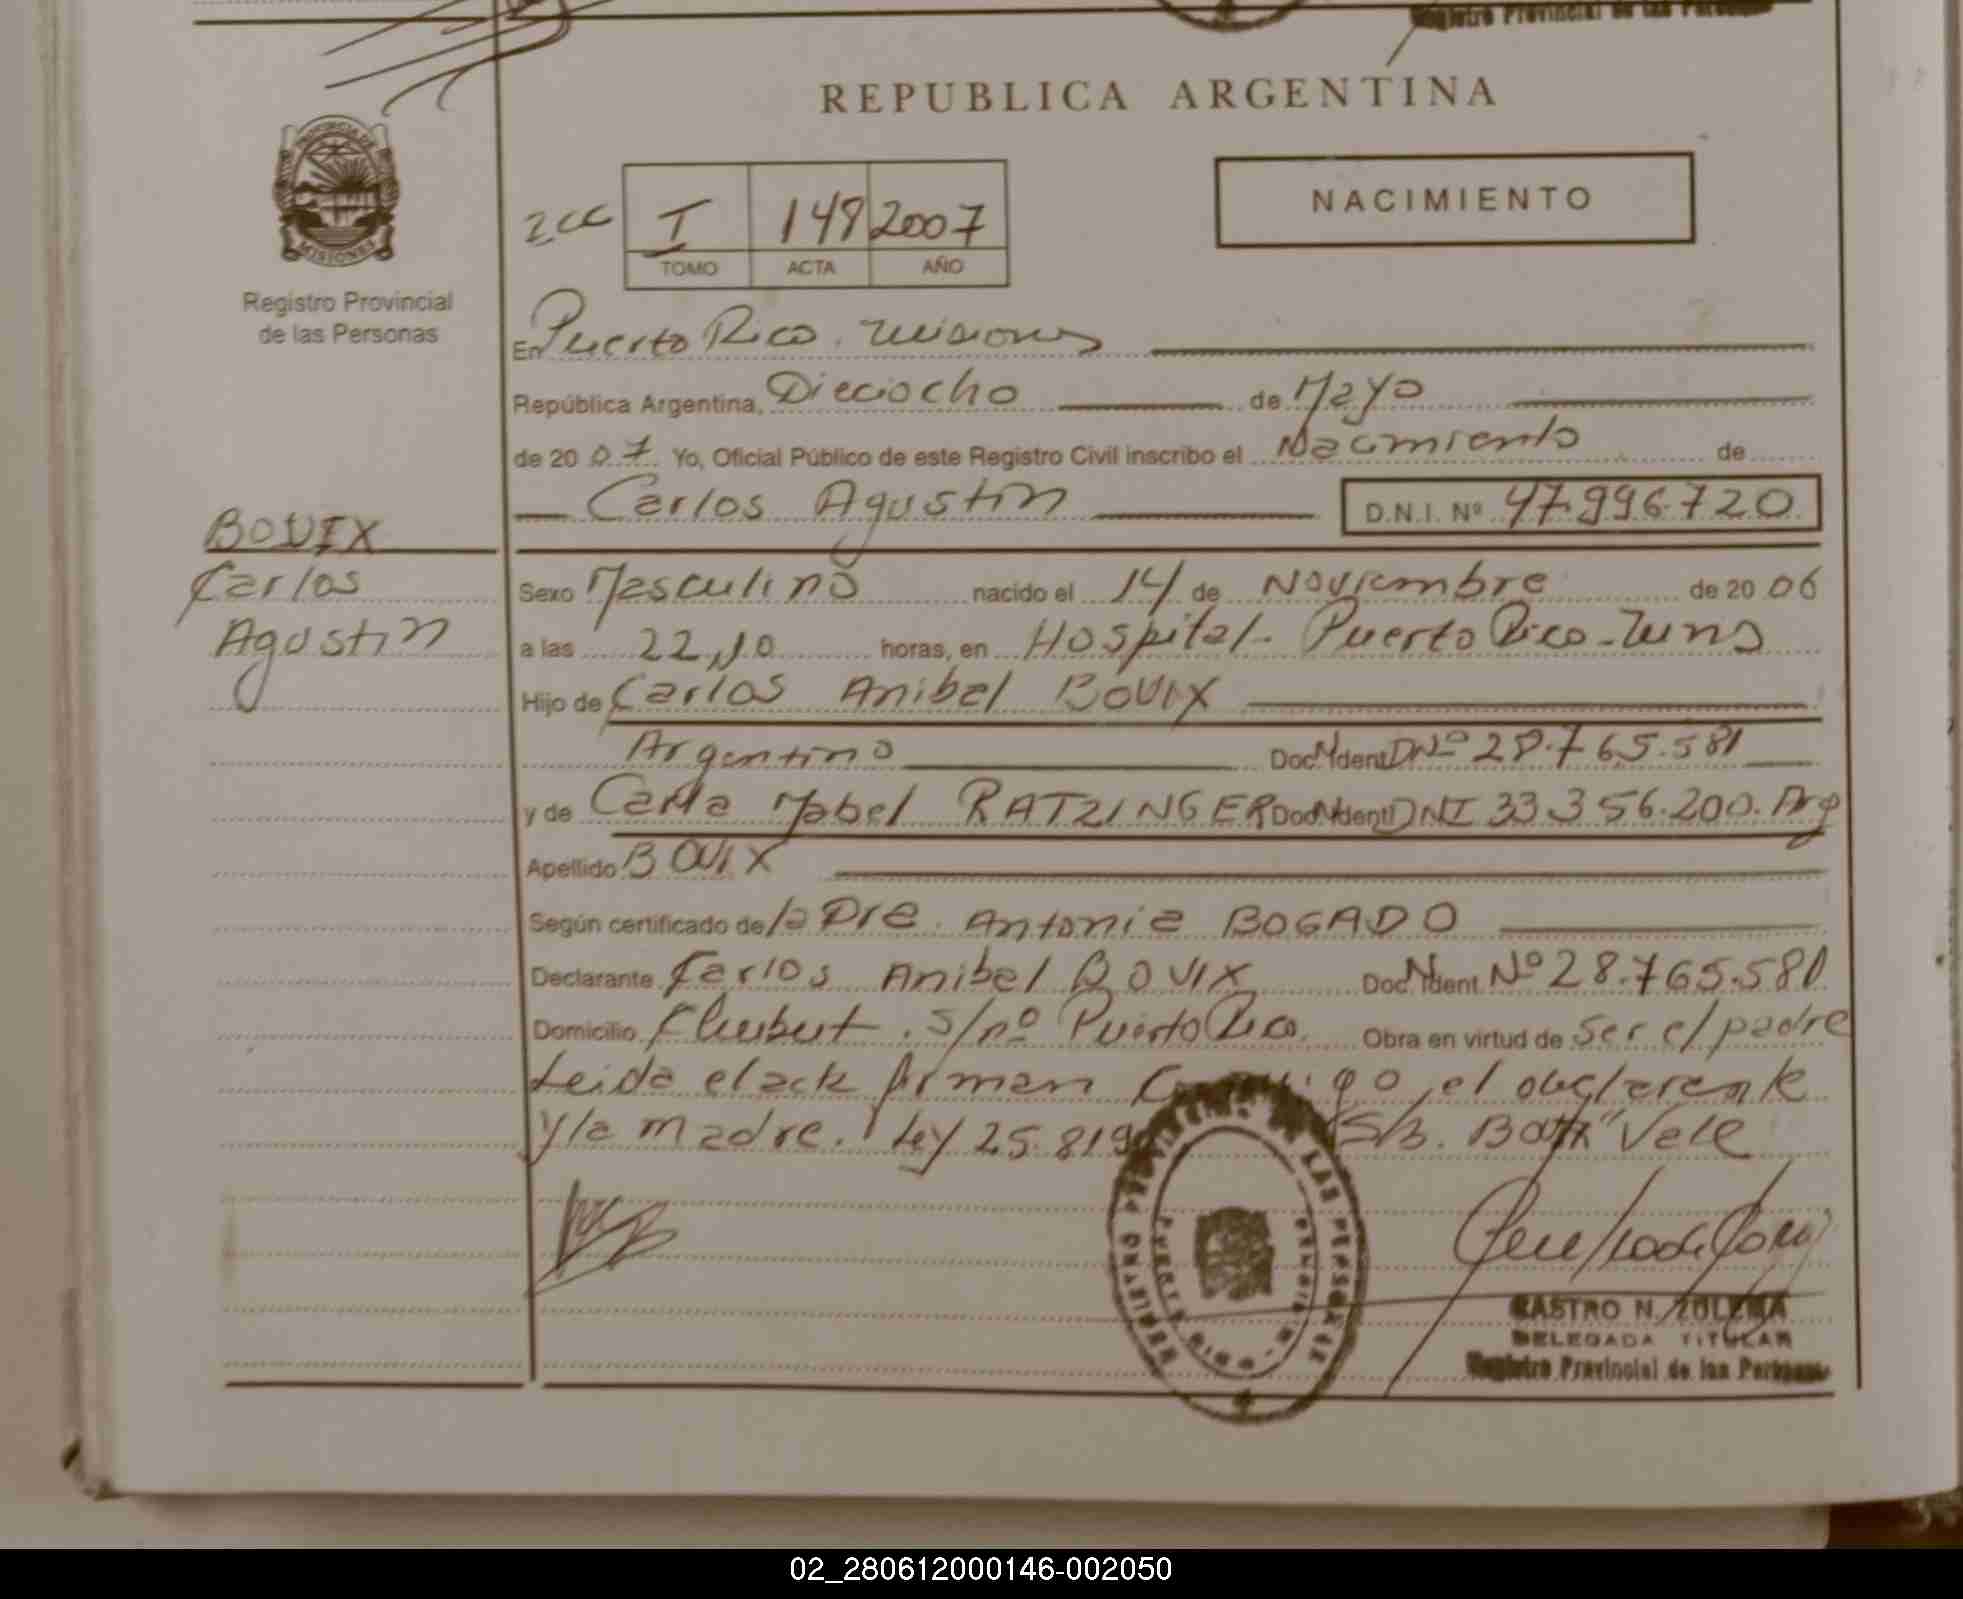 Registro Provincial de las Personas
REPUBLICA ARGENTINA
PROVINCIA DE
MISIONES
Registro Provincial
de las Personas
I 148 2007
TOMO ACTA AÑO
NACIMIENTO
En Puerto Rico. Misiones
República Argentina, Dieciocho de Mayo
de 20 07 Yo, Oficial Público de este Registro Civil inscribo el Nacimiento de
Carlos Agustin D.N.I. Nº 47.996.720
BOVIX
Carlos
Agustin
Sexo Masculino nacido el 14 de Noviembre de 20 06
a las 22,10 horas, en Hospital. Puerto Rico-
Hijo de Carlos Anibal BOVIX
Argentino Doc. Ident. DNº 28.765.581
y de Carla Mabel RATZINGER Doc. Ident. DNI 33.356.200. Arg
Apellido BOVIX
Según certificado de la Dra. Antonia BOGADO
Declarante Carlos Anibal BOVIX Doc. Ident. Nº 28.765.581
Domicilio Chubut. S/nº Puerto Rico. Obra en virtud de Ser el padre
Leida el acta firman el declarante
y la madre. Ley 25.819 S/b. Vale
REGISTRO PROVINCIAL DE LAS PERSONAS
PUERTO RICO
CASTRO N. ZULEMA
DELEGADA TITULAR
Registro Provincial de las Personas
02_280612000146-002050